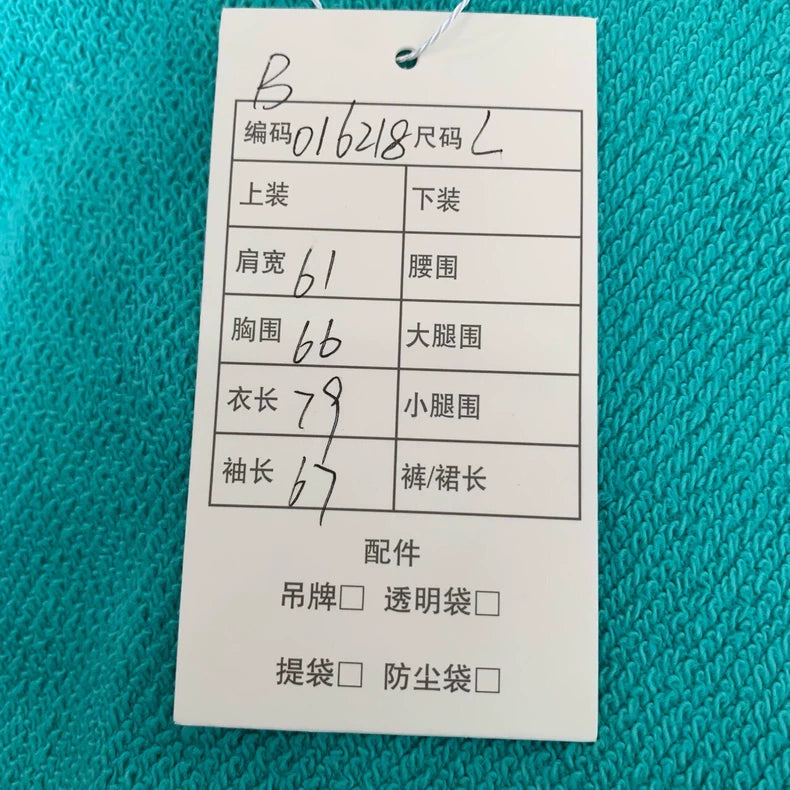 B
编码016218 尺码 L
上装 下装
肩宽 61 腰围
胸围 66 大腿围
衣长 79 小腿围
袖长 67 裤/裙长
配件
吊牌□ 透明袋□
提袋□ 防尘袋□